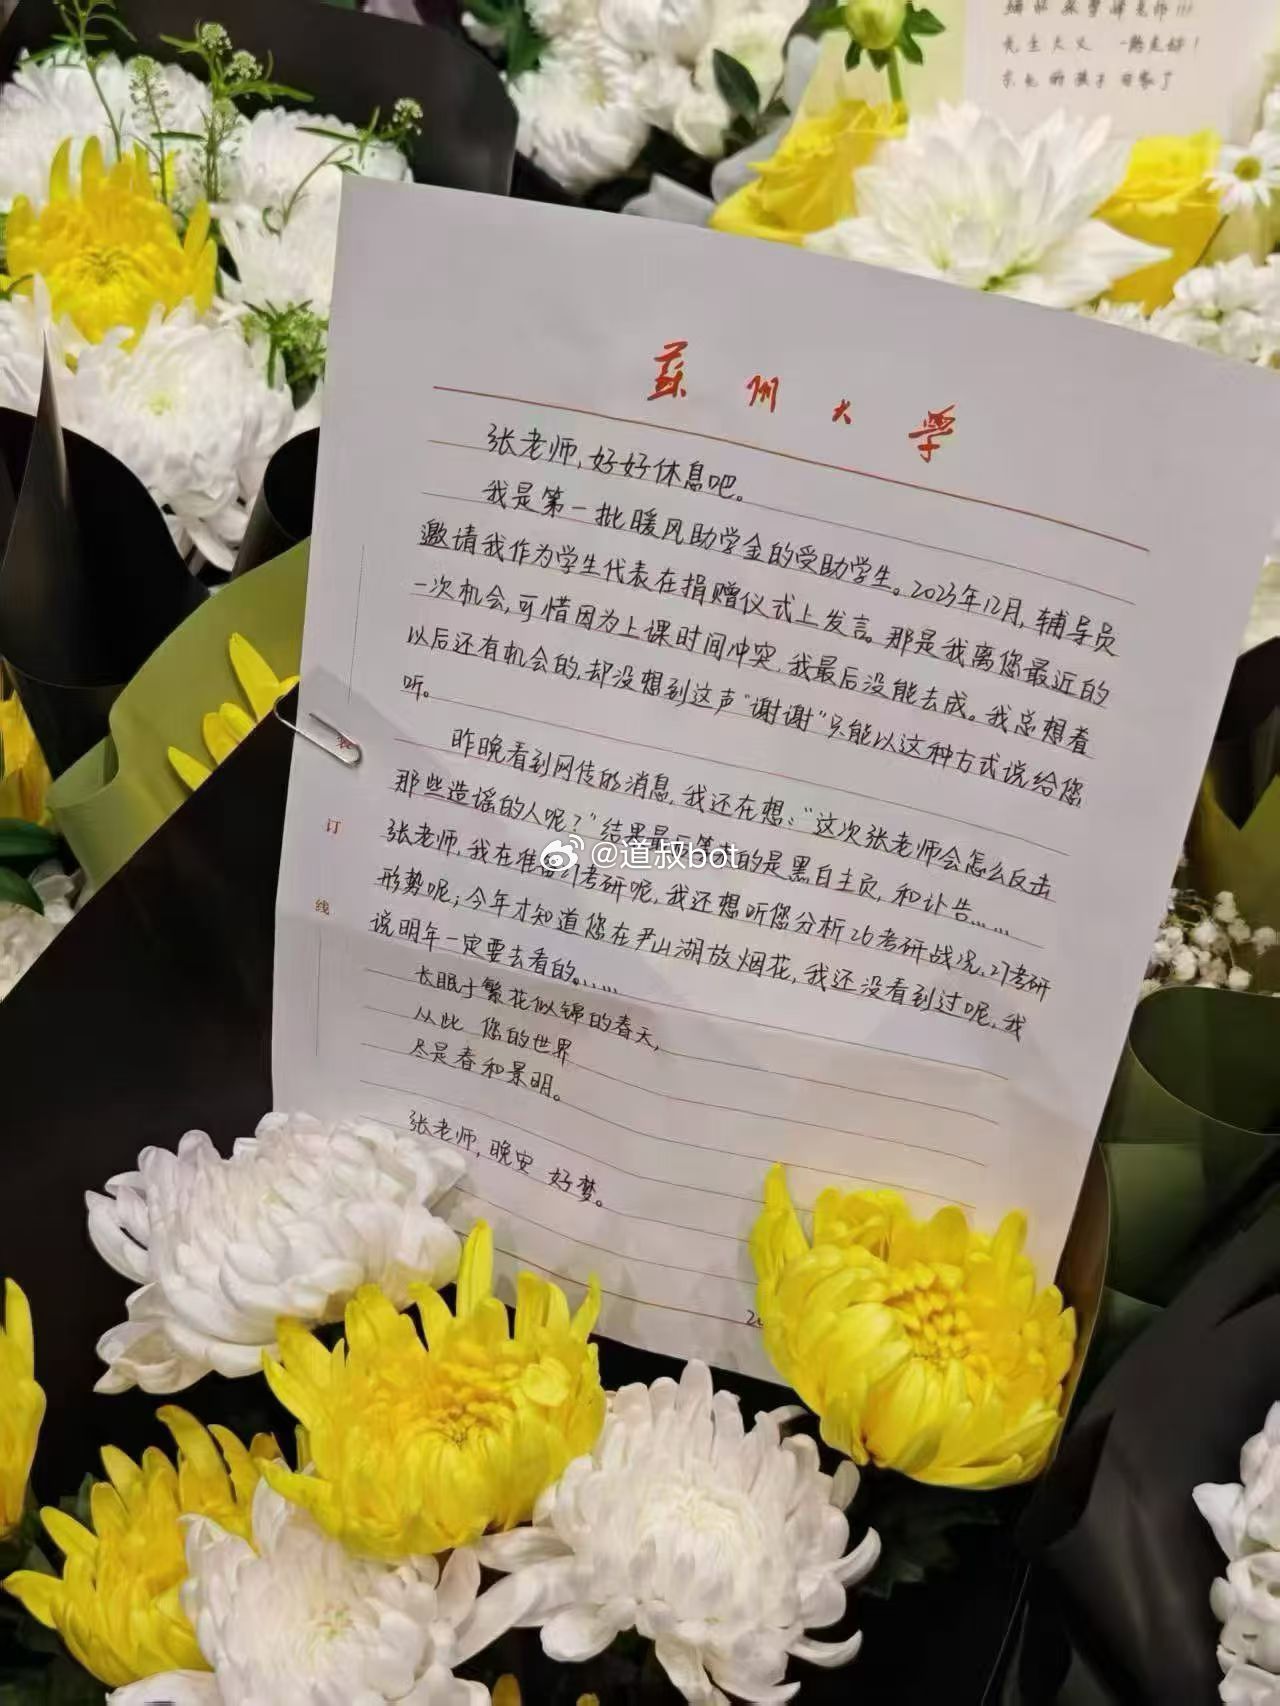 老师!!!
先生大义 一路走好!
的孩子
蘇州大学
张老师,好好休息吧。
我是第一批暖风助学金的受助学生。2023年12月,辅导员
邀请我作为学生代表在捐赠仪式上发言。那是我离您最近的
一次机会,可惜因为上课时间冲突,我最后没能去成。我总想着
以后还有机会的,却没想到这声“谢谢”只能以这种方式说给您
听。
昨晚看到网传的消息,我还在想:“这次张老师会怎么反击
那些造谣的人呢?”结果最 的是黑白主页,和讣告……
张老师,我在准备27考研呢,我还想听您分析26考研战况,27考研
形势呢;今年才知道您在尹山湖放烟花,我还没看到过呢,我
说明年一定要去看的。……
长眠于繁花似锦的春天,
从此 您的世界
尽是春和景明。
张老师,晚安 好梦。
装
订
线
@道叔bot